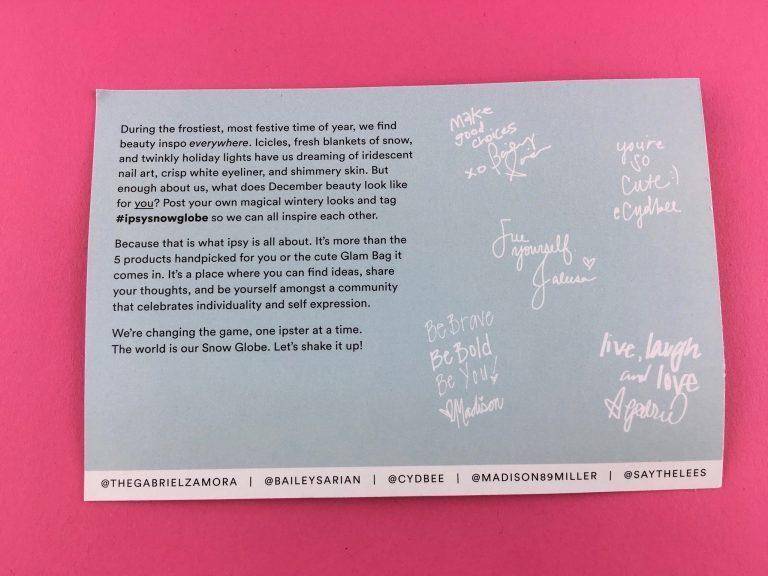 During the frostiest, most festive time of year, we find
beauty inspo everywhere. Icicles, fresh blankets of snow,
and twinkly holiday lights have us dreaming of iridescent
nail art, crisp white eyeliner, and shimmery skin. But
enough about us, what does December beauty look like
for you? Post your own magical wintery looks and tag
#ipsysnowglobe so we can all inspire each other.
Because that is what ipsy is all about. It's more than the
5 products handpicked for you or the cute Glam Bag it
comes in. It's a place where you can find ideas, share
your thoughts, and be yourself amongst a community
that celebrates individuality and self expression.
We're changing the game, one ipster at a time.
The world is our Snow Globe. Let's shake it up!
Make
good
choices
xo
you're
so
cute :)
@Cydbee
yourself
Be Brave
Be Bold
Be You!
Madison
live, laugh
and love
@THEGABRIELZAMORA | @BAILEYSARIAN | @CYDBEE | @MADISON89MILLER | @SAYTHELEES